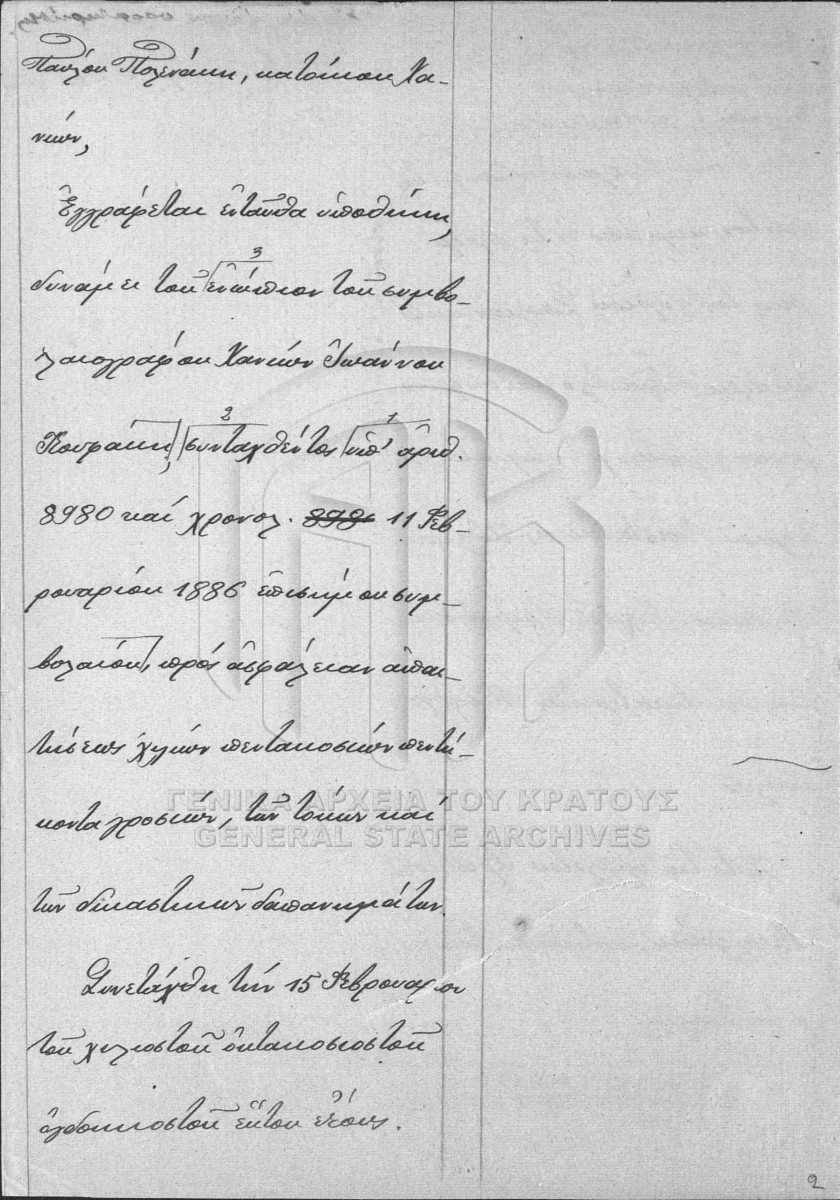 Παύλου Πολενάκη, κατοίκου Χα-
νίων,
Ἐγγράφεται ἐνταῦθα ὑποθήκη,
3
δυνάμει τοῦ ἐνώπιον τοῦ συμβο-
λαιογράφου Χανίων Ἰωάννου
2 1
συνταχθέντος ὑπ' ἀριθ.
8980 καί χρονολ. 11 Φεβ-
ρουαρίου 1886 ἐπισήμου συμ-
βολαίου, πρός ἀσφάλειαν ἀπαι-
τήσεως χιλίων πεντακοσίων πεντή-
κοντα γροσίων, τῶν τόκων καί
τῶν δικαστικῶν δαπανημάτων.
Συνετάχθη τήν 15 Φεβρουαρίου
τοῦ χιλιοστοῦ ὀκτακοσιοστοῦ
ὀγδοηκοστοῦ ἕκτου ἔτους.
ΓΕΝΙΚΑ ΑΡΧΕΙΑ ΤΟΥ ΚΡΑΤΟΥΣ
GENERAL STATE ARCHIVES
2